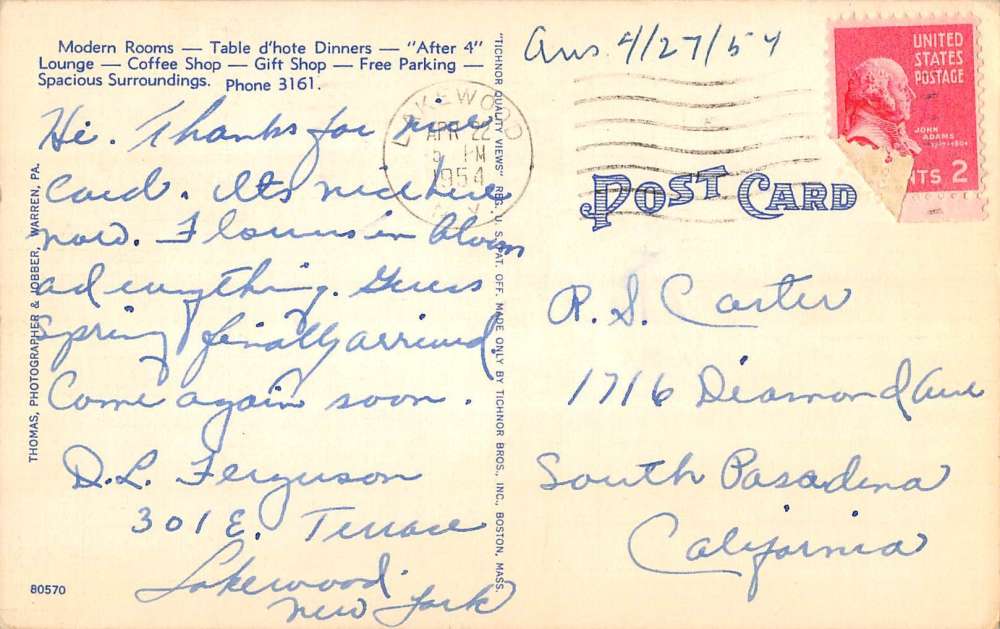 Modern Rooms — Table d'hote Dinners — "After 4"
Lounge — Coffee Shop — Gift Shop — Free Parking —
Spacious Surroundings. Phone 3161.
Hi. Thanks for nice
card. Its nice here
now. Flowers in bloom
ad everything. Guess
Spring finally arrived.
Come again soon.
D.L. Ferguson
301 E. Terrace
Lakewood
New York
80570
THOMAS, PHOTOGRAPHER & JOBBER, WARREN, PA.
"TICHNOR QUALITY VIEWS" REG. U. S. PAT. OFF. MADE ONLY BY TICHNOR BROS., INC., BOSTON, MASS.
Ans 4/27/54
LAKEWOOD
APR 22
5 PM
1954
N.Y.
UNITED
STATES
POSTAGE
JOHN
ADAMS
NTS 2
POST CARD
R. S. Carter
1716 Diamond Ave
South Pasadena
California